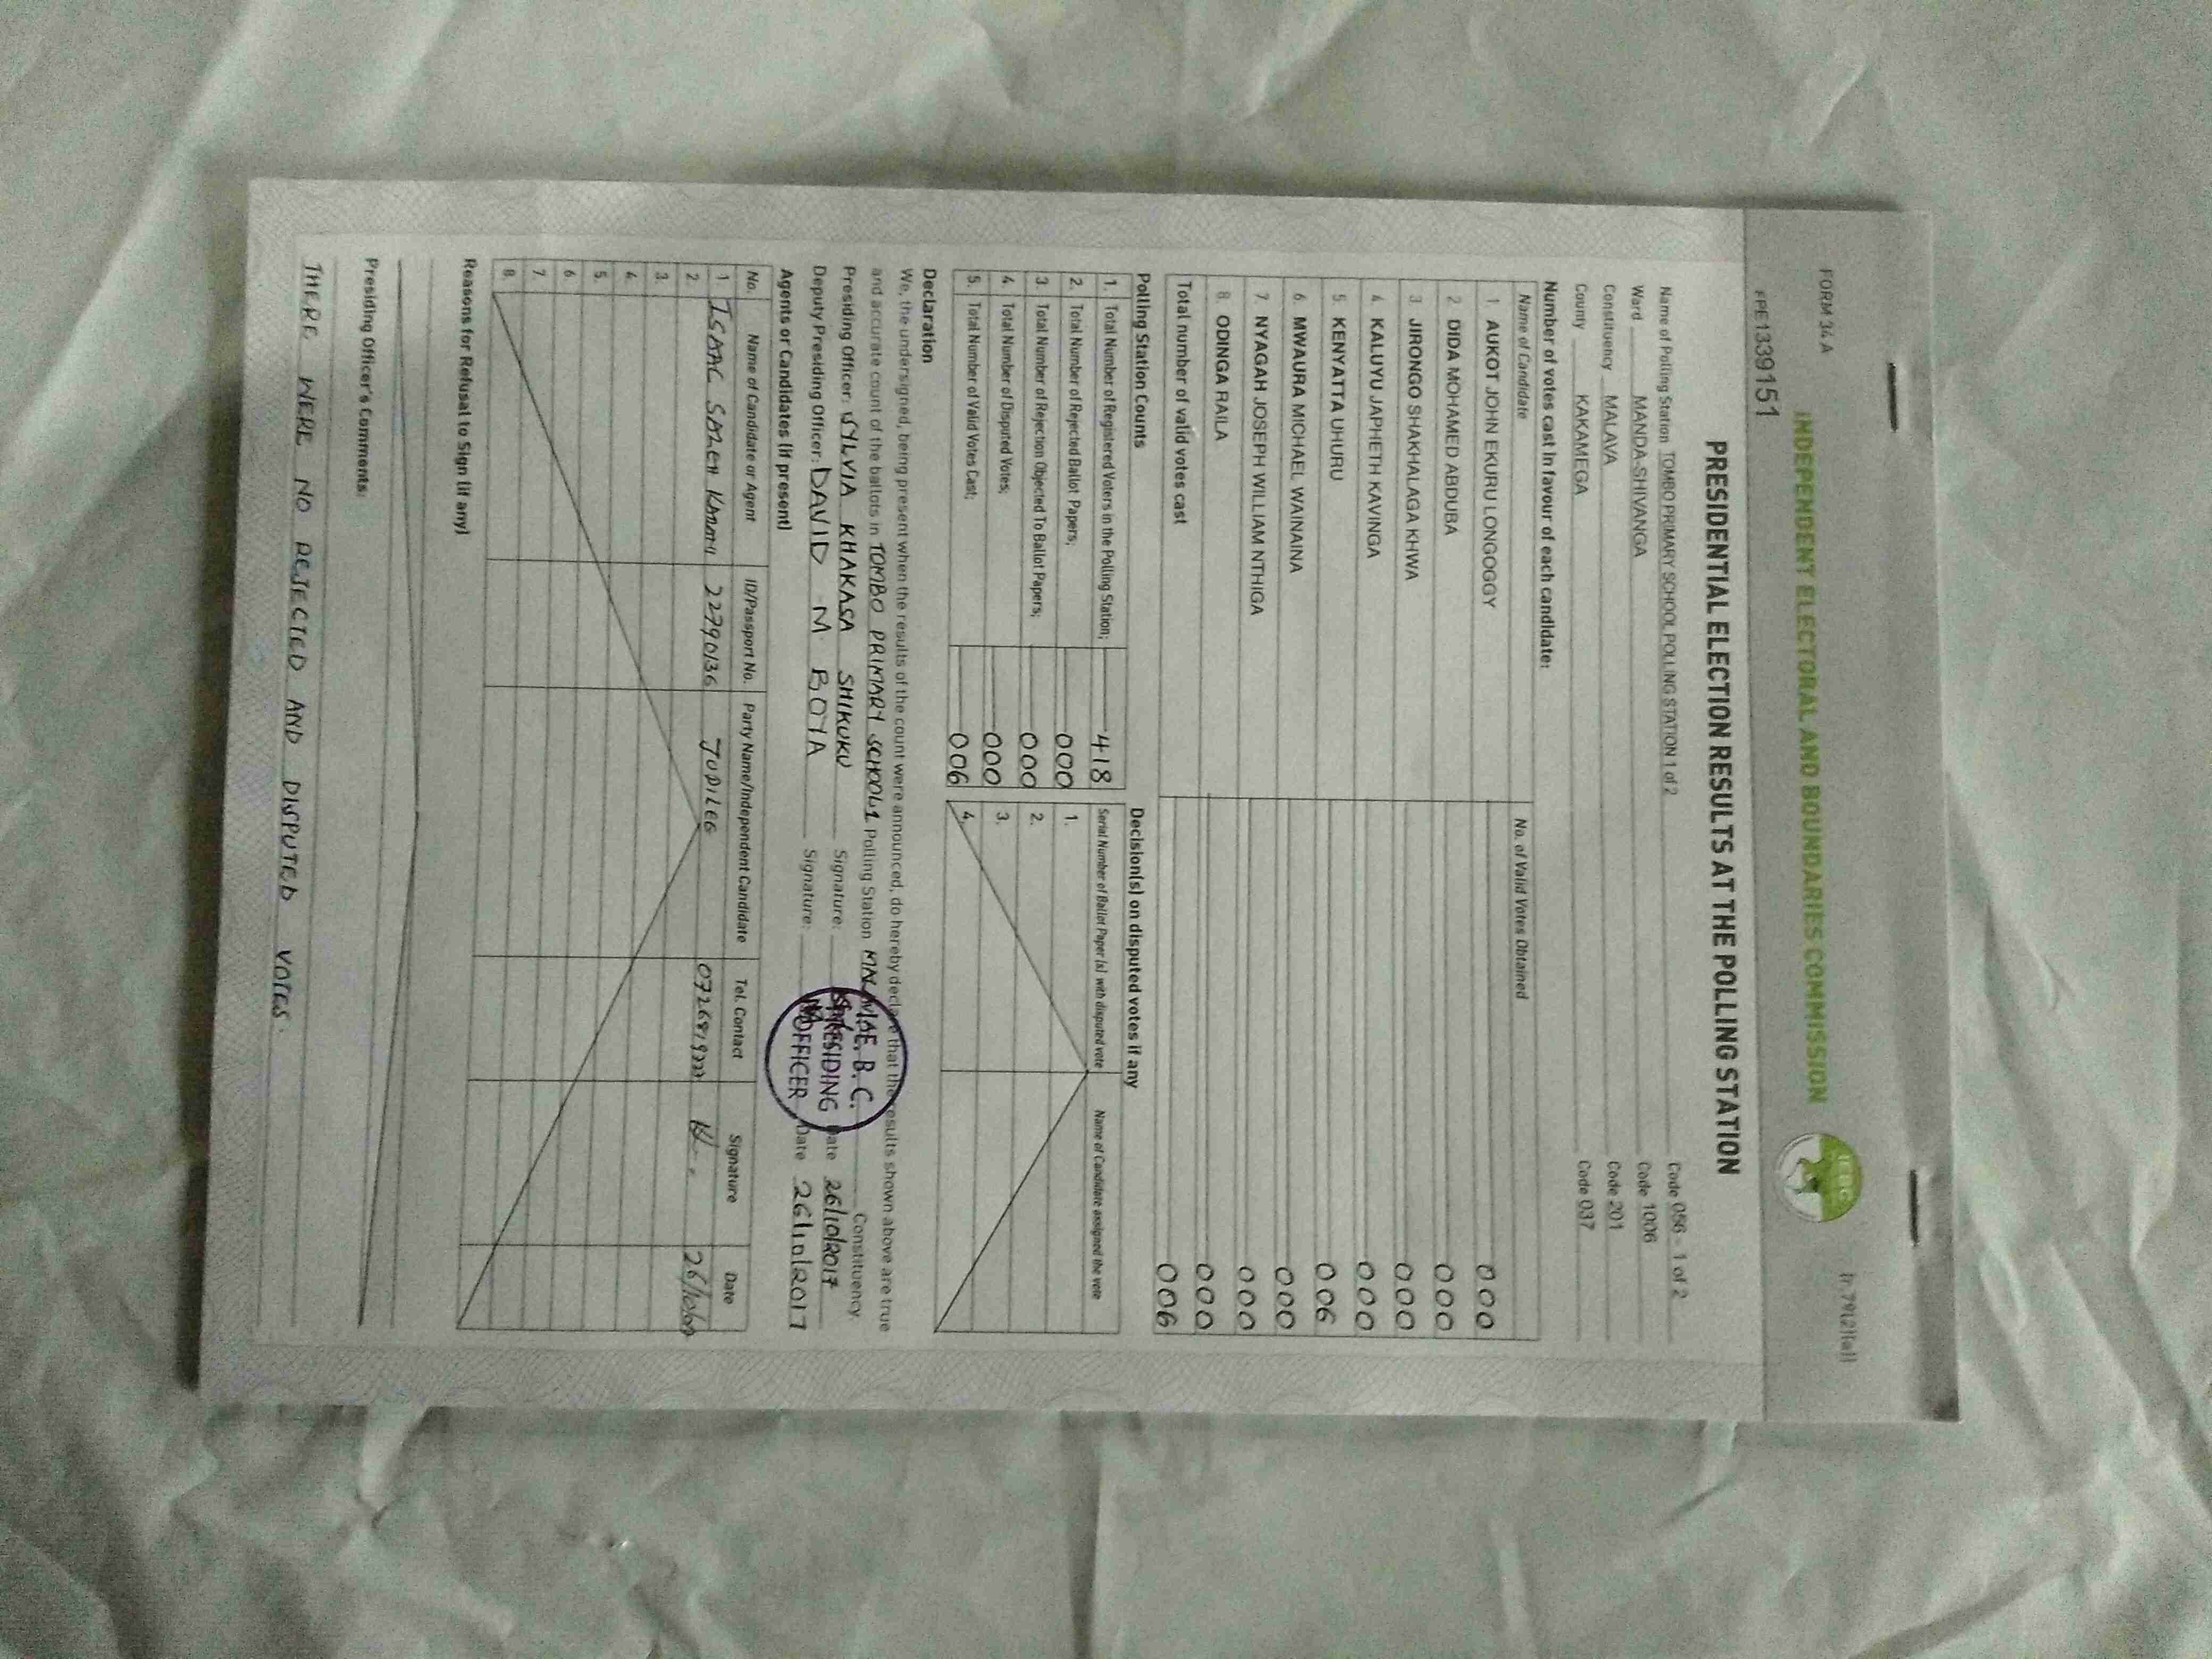 FORM 34 A
(r. 79(2)(a))
INDEPENDENT ELECTORAL AND BOUNDARIES COMMISSION
IEBC
FPE1339151
PRESIDENTIAL ELECTION RESULTS AT THE POLLING STATION
Name of Polling Station TOMBO PRIMARY SCHOOL POLLING STATION 1 of 2 Code 056 - 1 of 2
Ward MANDA-SHIVANGA Code 1006
Constituency MALAVA Code 201
County KAKAMEGA Code 037
Number of votes cast in favour of each candidate:
Name of Candidate No. of Valid Votes Obtained
1. AUKOT JOHN EKURU LONGOGGY 000
2. DIDA MOHAMED ABDUBA 000
3. JIRONGO SHAKHALAGA KHWA 000
4. KALUYU JAPHETH KAVINGA 000
5. KENYATTA UHURU 006
6. MWAURA MICHAEL WAINAINA 000
7. NYAGAH JOSEPH WILLIAM NTHIGA 000
8. ODINGA RAILA 000
Total number of valid votes cast 006
Polling Station Counts Decision(s) on disputed votes if any
1. Total Number of Registered Voters in the Polling Station; 418 Serial Number of Ballot Paper (s) with disputed vote Name of Candidate assigned the vote
2. Total Number of Rejected Ballot Papers; 000 1.
3. Total Number of Rejection Objected To Ballot Papers; 000 2.
4. Total Number of Disputed Votes; 000 3.
5. Total Number of Valid Votes Cast; 006 4.
Declaration
We, the undersigned, being present when the results of the count were announced, do hereby declare that the results shown above are true
and accurate count of the ballots in TOMBO PRIMARY SCHOOL 1 Polling Station Constituency.
Presiding Officer: SYLVIA KHAKASA SHIKUKU Signature: Date 26/10/2017
Deputy Presiding Officer: DAVID M BOYA Signature: Date 26/10/2017
PRESIDING
OFFICER
Agents or Candidates (if present)
No. Name of Candidate or Agent ID/Passport No. Party Name/Independent Candidate Tel. Contact Signature Date
1 ISAAC 22790136 JUBILEE
2.
3.
4.
5.
6.
7.
8.
Reasons for Refusal to Sign (if any)
Presiding Officer's Comments:
THERE WERE NO REJECTED AND DISPUTED VOTES.